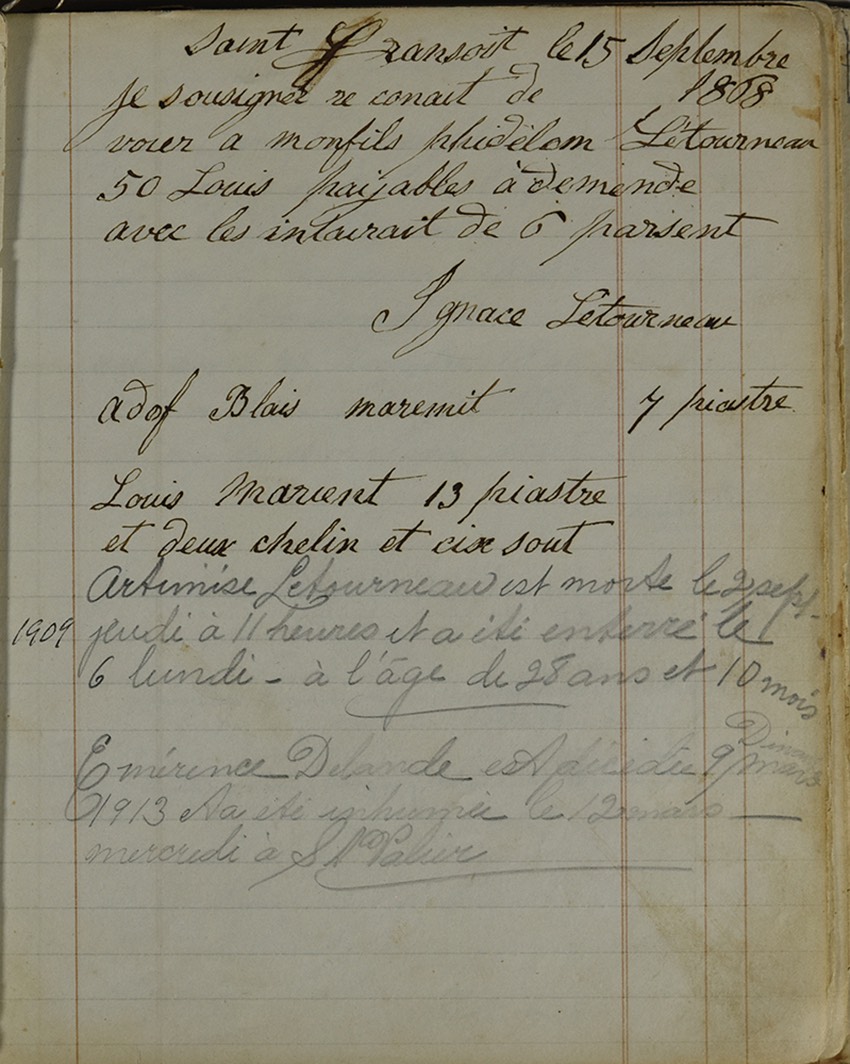 Saint Fransoit le 15 Septembre
1868
je sousigner re conait de
voier a monfils phidèlem Létourneau
50 Louis payables à demende
avec les intairait de 6 parsent
Ignace Létourneau
adof Blais maremit 7 piastre
Louis Marient 13 piastre
et deux chelin et cix sout
Artémise Letourneau est morte le 2 sept.
1909 jeudi à 11 heures et a été enterré le
6 lundi - à l'âge de 28 ans et 10 mois
Emérence Delande est décédée 9 mars
1913 et a été inhumée le 12 mars
mercredi à St Valier